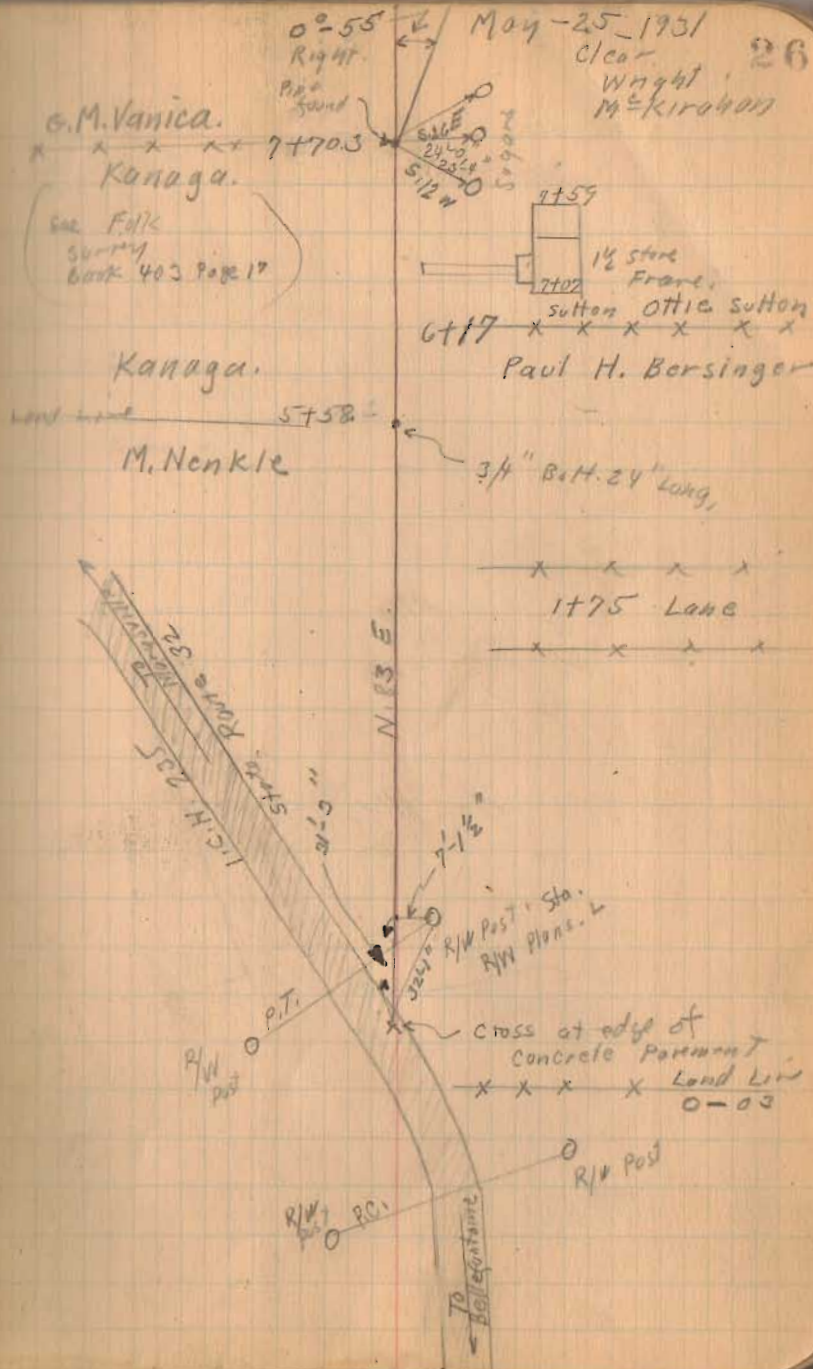 0°-55'
Right.
May-25-1931
Clear
Wright
McKirahan
26
Pipe
found
G.M. Vanica.
7+70.3
Kanaga.
See Folk
Survey
Book 403 Page 17
S.12 W
7+59
7+07
1½ Store
Frame.
Sutton Ottie Sutton
6+17
Paul H. Bersinger
Kanaga.
Land Line 5+58
M. Nenkle
3/4" Bolt. 24" Long,
1+75 Lane
N.83 E.
To
Marysville
State Route 32
I.C.H. 235
7'-1½"
R/W Post. Sta.
R/W Plans.
P.T.
R/W
Post
Cross at edge of
Concrete Pavement
Land Line
0-03
R/W Post
R/W
Post
P.C.
To
Bellefontaine